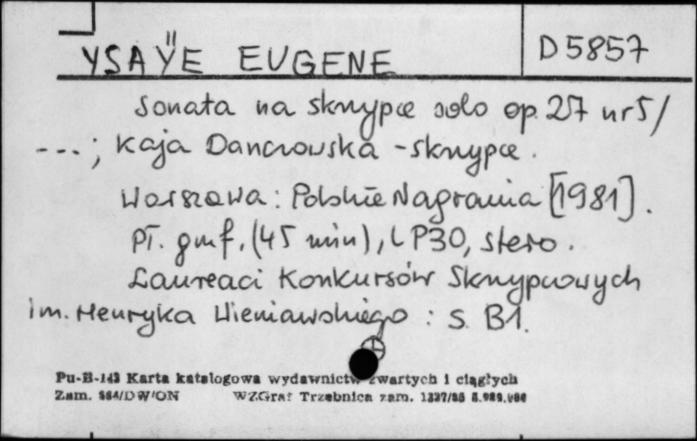 YSAŸE EUGENE
D 5857
Sonata na skrzypce solo op. 27 nr 5/
---; Kaja Danczowska - skrzypce.
Warszawa: Polskie Nagrania [1981].
Pł. gmf, (45 min), LP30, stereo.
Laureaci Konkursów Skrzypcowych
im. Henryka Wieniawskiego : s. B1.
Pu-B-143 Karta katalogowa wydawnictw zwartych i ciągłych
Zam. 564/DW/ON WZGraf Trzebnica zam.